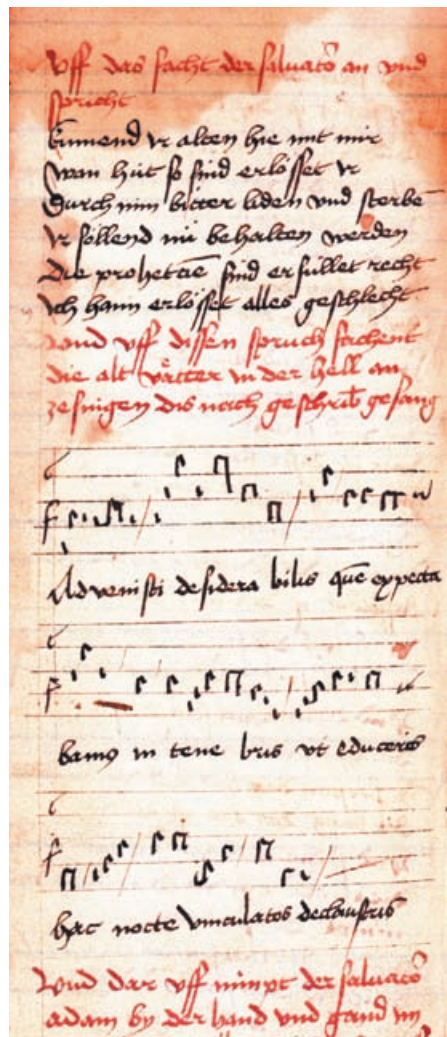 Uff das facht der salvatō an und
spricht
kumend ir alten hie mit mir
wan hüt so sind erlösset ir
durch min bitter liden und sterbē
ir söllend nü behalten werden
die prohetciē sind erfüllet recht
ich hann erlösset alles geschlecht
und uff dissen spruch fachent
die alt vätter in der hell an
zesingen dis nach geschrib gesang
Advenisti desidera bilis quē expecta
bamus in tene bris ut educeres
hac nocte vinculatos declaustris
Und dar uff nimpt der salvatō
adam by der hand und gand im